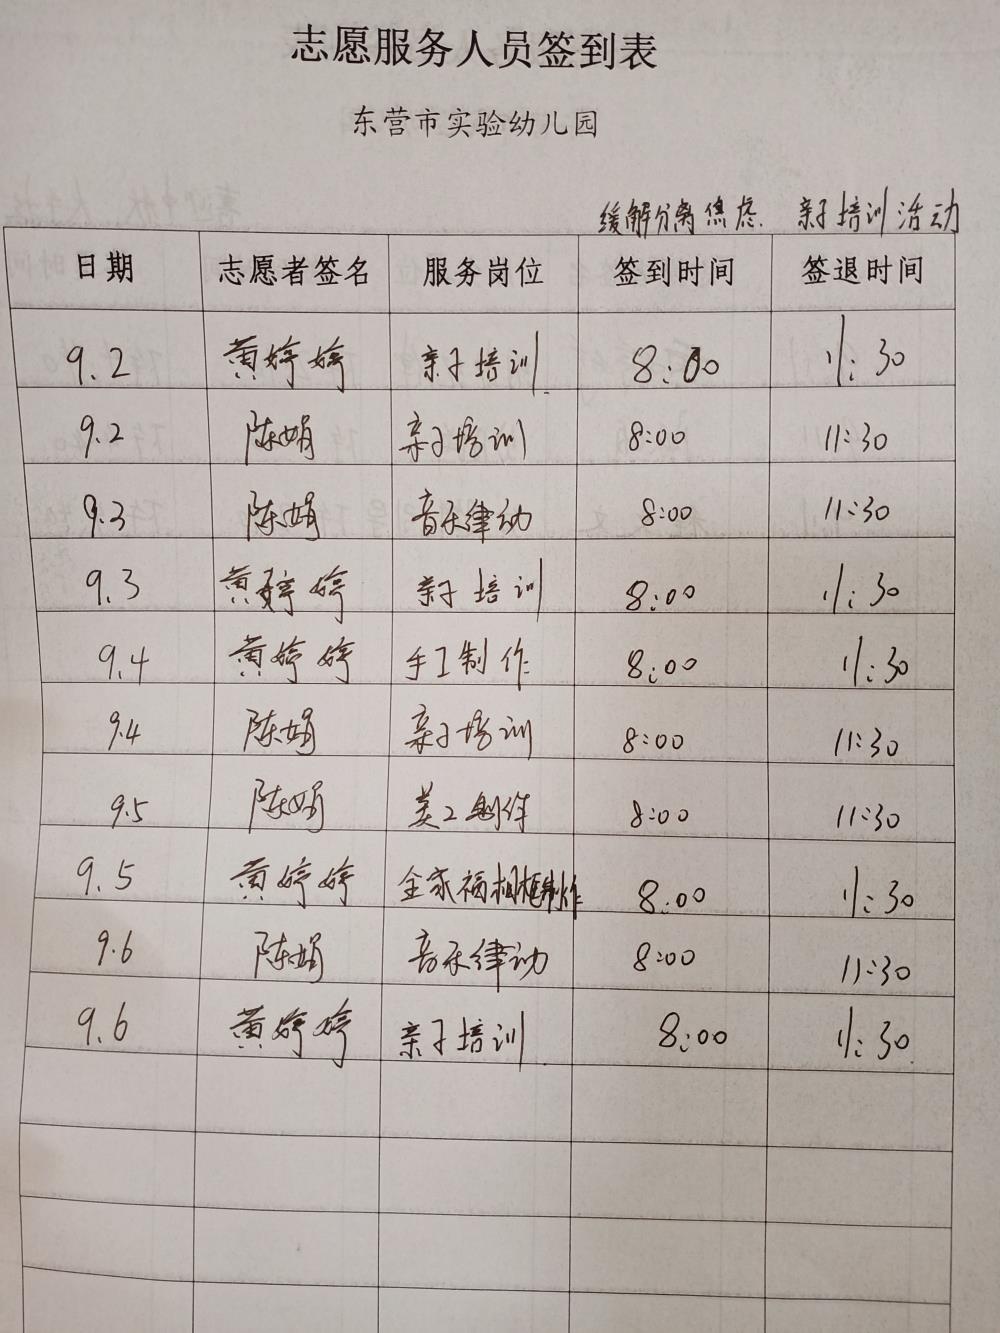 志愿服务人员签到表
东营市实验幼儿园
缓解分离焦虑. 亲子培训活动
日期 志愿者签名 服务岗位 签到时间 签退时间
9.2 黄婷婷 亲子培训 8:00 11:30
9.2 陈娟 亲子培训 8:00 11:30
9.3 陈娟 音乐律动 8:00 11:30
9.3 黄婷婷 亲子培训 8:00 11:30
9.4 黄婷婷 手工制作 8:00 11:30
9.4 陈娟 亲子培训 8:00 11:30
9.5 陈娟 美工制作 8:00 11:30
9.5 黄婷婷 全家福相框制作 8:00 11:30
9.6 陈娟 音乐律动 8:00 11:30
9.6 黄婷婷 亲子培训 8:00 11:30